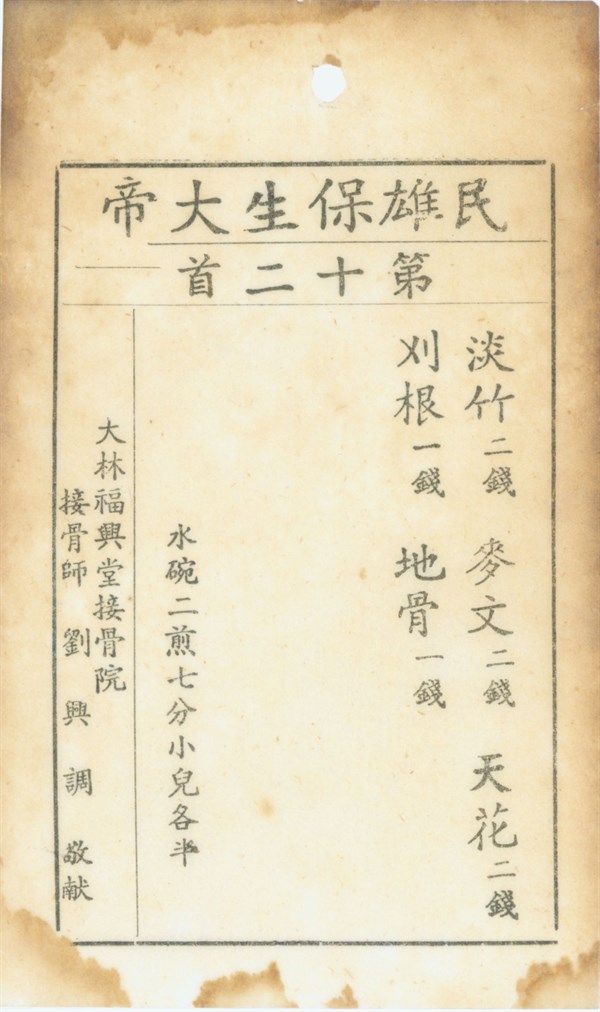 民雄保生大帝
第十二首
淡竹二錢 麥文二錢 天花二錢
刈根一錢 地骨一錢
水碗二煎七分小兒各半
大林福興堂接骨院
接骨師 劉興調 敬献